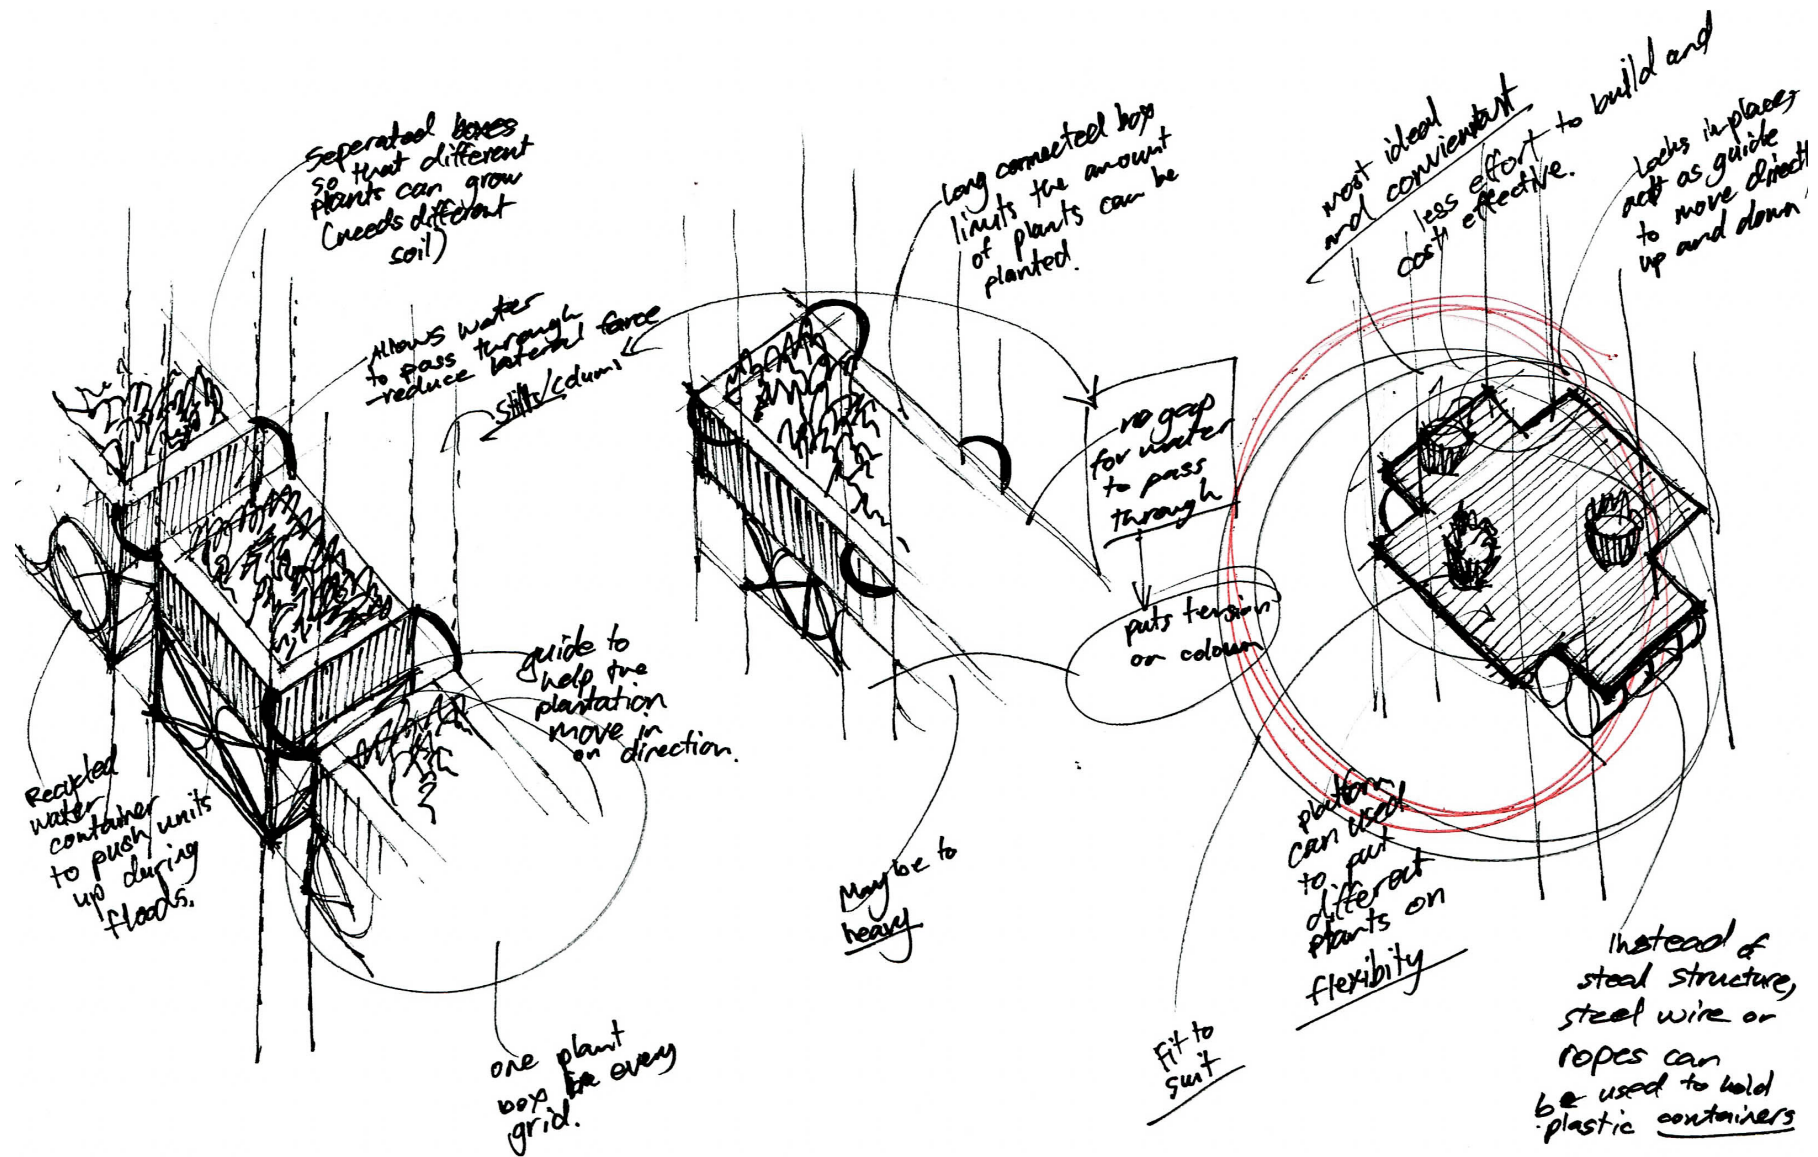 Seperated boxes
so that different
plants can grow
(needs different
soil)
Allows water
to pass through
-reduce lateral force
stilts/colums
guide to
help the
plantation
move in
on direction.
Recycled
water
container
to push units
up during
floods.
one plant
box in every
grid.
Long connected box
limits the amount
of plants can be
planted.
no gap
for water
to pass
through
puts tension
on column
May be to
heavy
most ideal
and convienient
less effort to build and
cost effective.
Locks in place,
act as guide
to move directly
up and down
platform
can used
to put
different
plants on
flexibity
Fit to
suit
Instead of
steal structure,
steel wire or
ropes can
be used to hold
plastic containers